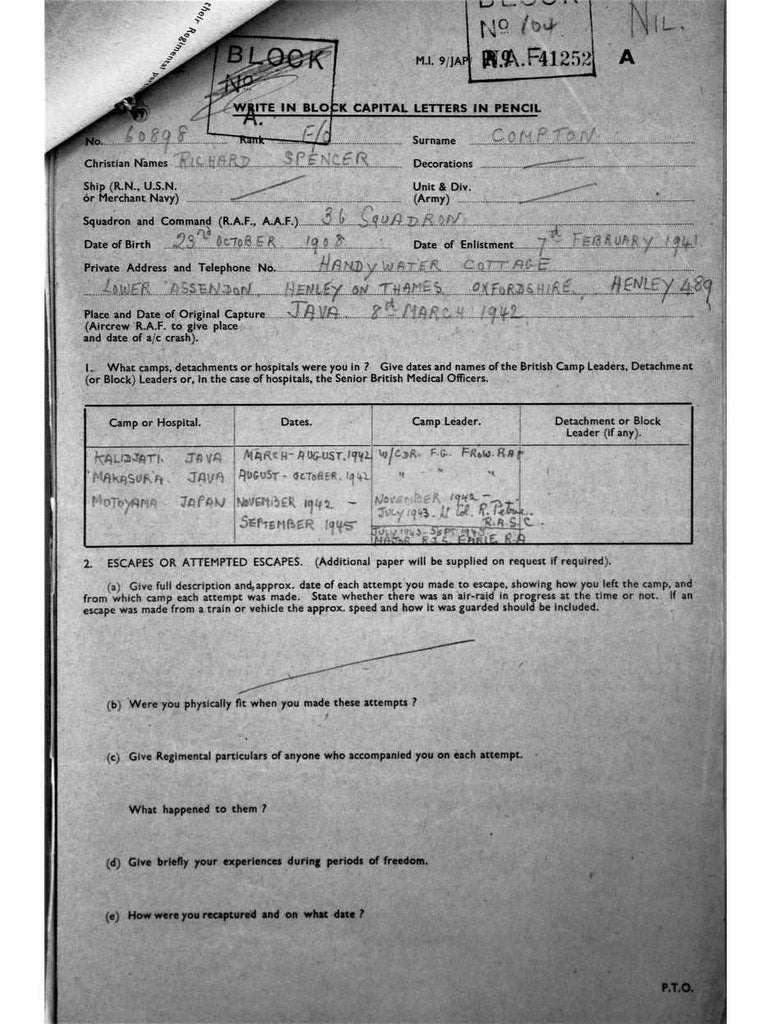 their Regimental
BLOCK
No
A.
BLOCK
No 104
NIL.
M.I. 9/JAP
R.A.F 41252
A
WRITE IN BLOCK CAPITAL LETTERS IN PENCIL
No. 60898 Rank F/O Surname COMPTON
Christian Names RICHARD SPENCER Decorations
Ship (R.N., U.S.N. or Merchant Navy)
Unit & Div. (Army)
Squadron and Command (R.A.F., A.A.F.) 36 SQUADRON
Date of Birth 23rd OCTOBER. 1908. Date of Enlistment 7th FEBRUARY 1941
Private Address and Telephone No. HANDYWATER COTTAGE
LOWER ASSENDON, HENLEY ON THAMES. OXFORDSHIRE. HENLEY 489
Place and Date of Original Capture JAVA. 8th MARCH 1942
(Aircrew R.A.F. to give place
and date of a/c crash).
1. What camps, detachments or hospitals were you in ? Give dates and names of the British Camp Leaders, Detachment
(or Block) Leaders or, in the case of hospitals, the Senior British Medical Officers.
Camp or Hospital. Dates. Camp Leader. Detachment or Block Leader (if any).
KALIDJATI. JAVA MARCH-AUGUST.1942 W/CDR. F.G. FROW. RAF
MAKASURA. JAVA AUGUST - OCTOBER.1942 " " "
MOTOYAMA JAPAN NOVEMBER 1942 - NOVEMBER 1942 -
SEPTEMBER 1945 JULY 1943. Lt Col. R. Petrie.
R.A.S.C.
JULY 1943 - SEPT 1945
MAJOR R.A
2. ESCAPES OR ATTEMPTED ESCAPES. (Additional paper will be supplied on request if required).
(a) Give full description and, approx. date of each attempt you made to escape, showing how you left the camp, and
from which camp each attempt was made. State whether there was an air-raid in progress at the time or not. If an
escape was made from a train or vehicle the approx. speed and how it was guarded should be included.
(b) Were you physically fit when you made these attempts ?
(c) Give Regimental particulars of anyone who accompanied you on each attempt.
What happened to them ?
(d) Give briefly your experiences during periods of freedom.
(e) How were you recaptured and on what date ?
P.T.O.